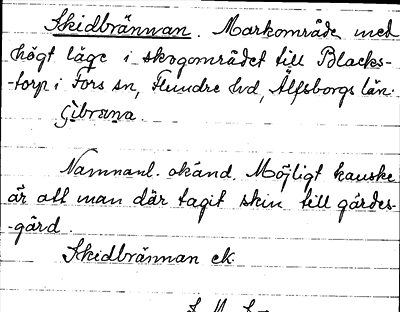 Skidbrännan. Markområde med
högt läge i skogområdet till Blacks-
-torp i Fors sn, Flundre hd, Älfsborgs län.
Namnanl. okänd. Möjligt kanske
är att man där tagit skin till gärdes-
-gård.
Skidbrännan ek.